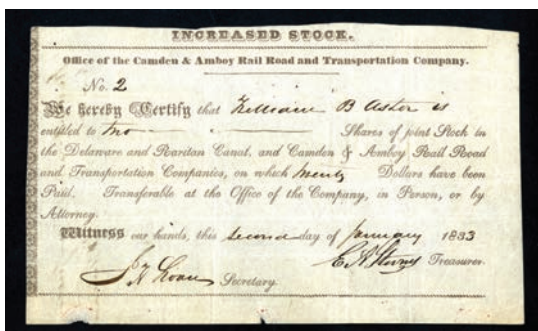 INCREASED STOCK.
Office of the Camden & Amboy Rail Road and Transportation Company.
No. 2
We hereby Certify that William B Astor is
entitled to two Shares of joint Stock in
the Delaware and Raritan Canal, and Camden & Amboy Rail Road
and Transportation Companies, on which Dollars have been
Paid. Transferable at the Office of the Company, in Person, or by
Attorney.
Witness our hands, this second day of January 1833
Treasurer.
Secretary.